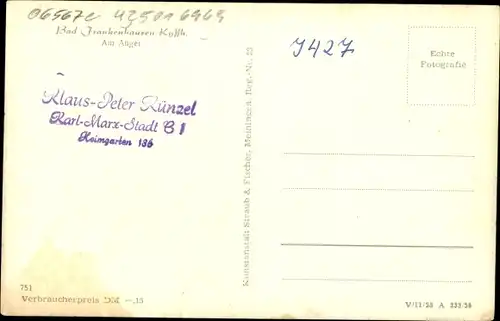 06567c 425016969
Bad Frankenhausen Kyffh.
Am Anger
J427
Echte
Fotografie
Klaus-Peter Künzel
Karl-Marx-Stadt C 1
Heimgarten 136
Kunstanstalt Straub & Fischer, Meiningen, Reg.-Nr. 22
751
Verbraucherpreis DM -,15
V/11/28 A 233/56